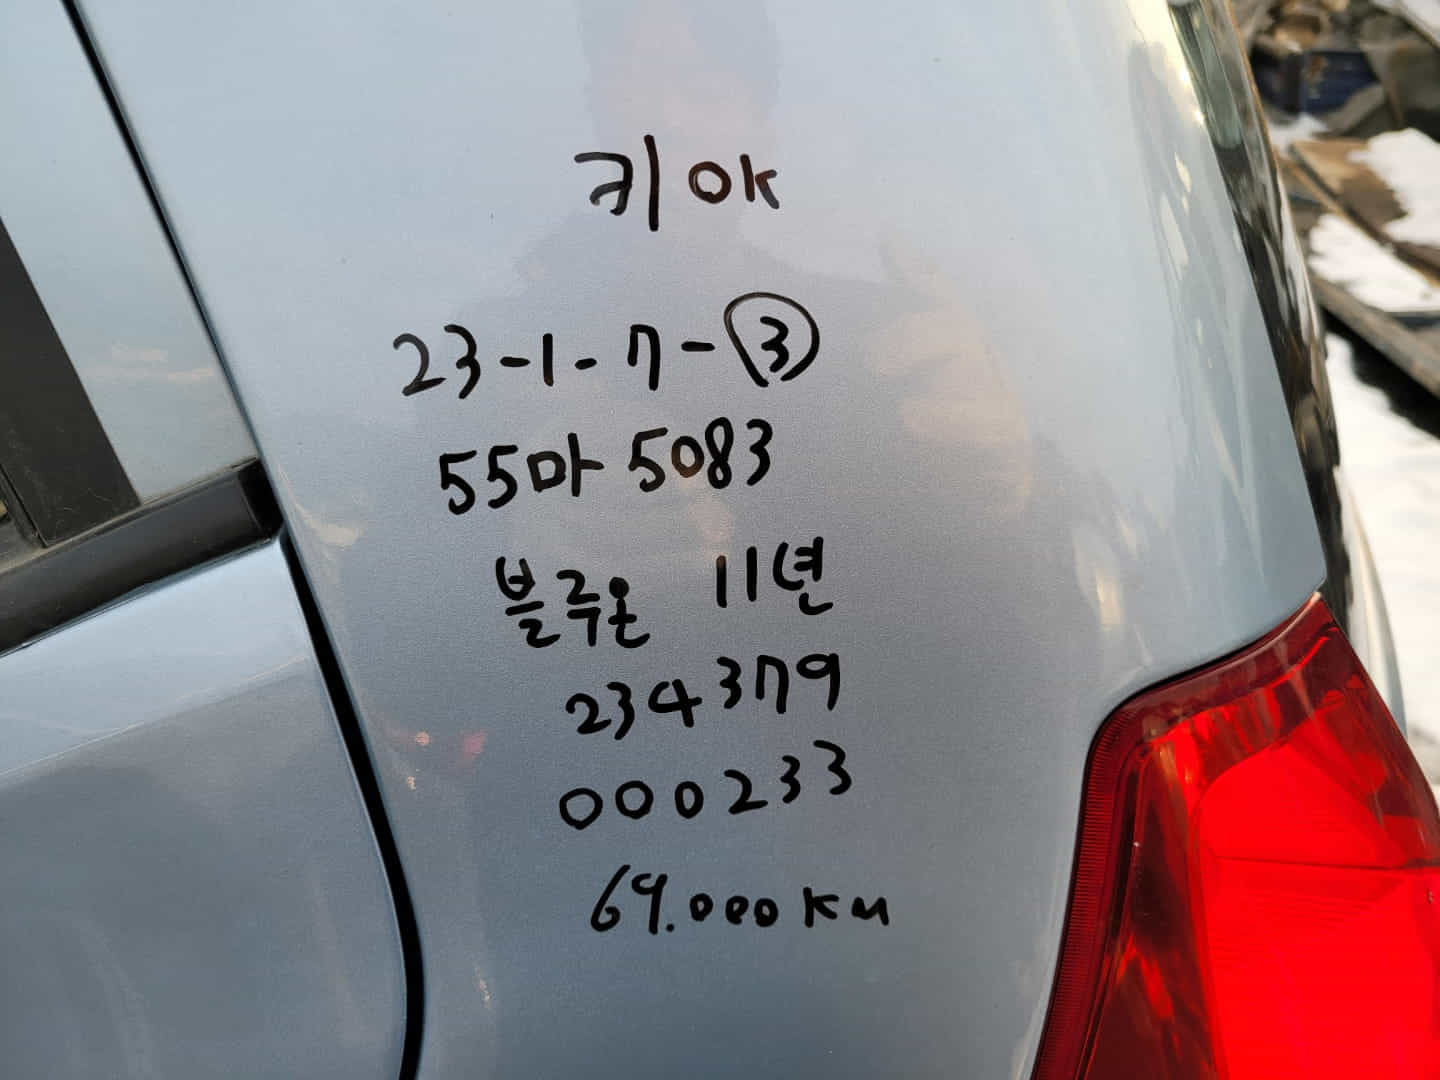 키 OK
23-1-7-③
55마 5083
블루온 11년
234379
000233
69.000 KM